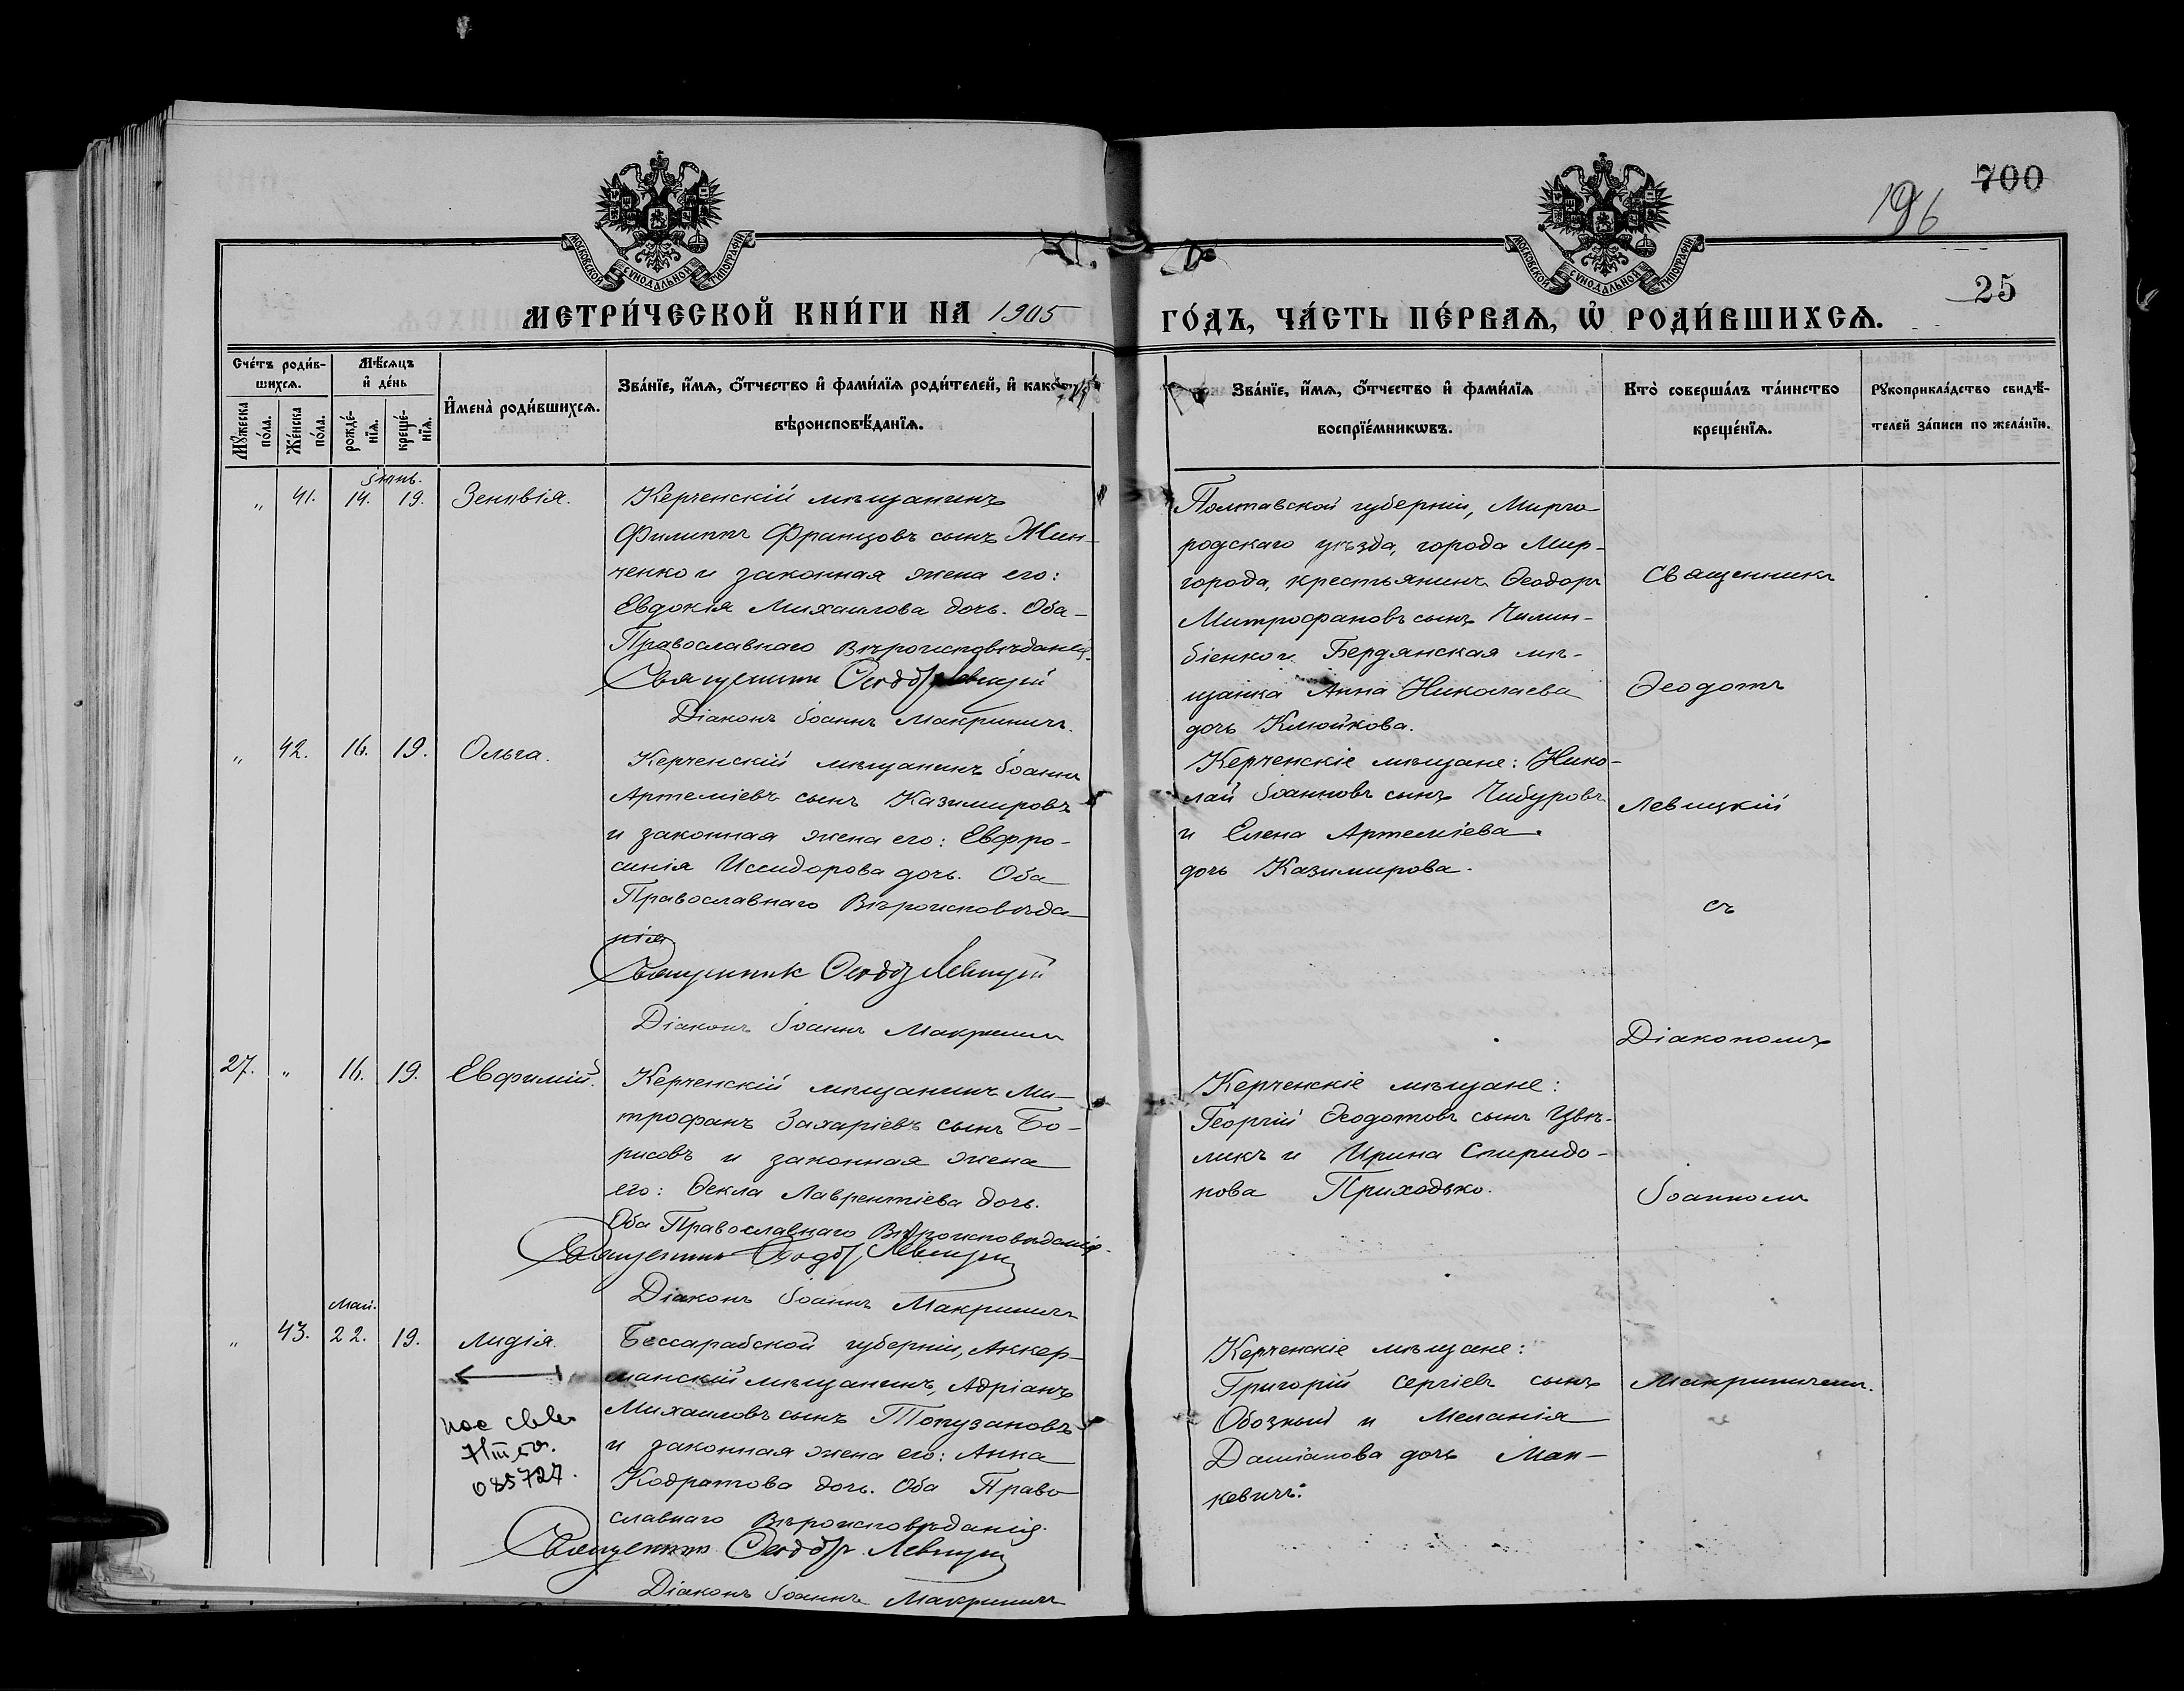 700
196
25
МОСКОВСКОЙ СѴНОДАЛЬНОЙ ТИПОГРАФІИ
МОСКОВСКОЙ СѴНОДАЛЬНОЙ ТИПОГРАФІИ
МЕТРИ́ЧЕСКОЙ КНИ́ГИ НА 1905
ГО́ДЪ, ЧА́СТЬ ПЕ́РВАѦ, Ѽ РОДИ́ВШИХСѦ.
Сче́тъ роди́в-
шихсѧ.
Мꙋ́жеска по́ла.
Же́нска по́ла.
Мѣ́сѧцъ
и҆ де́нь
рожде́-
нїѧ.
креще́-
нїѧ.
И҆мена̀ роди́вшихсѧ.
Зва́нїе, и҆́мѧ, ѻ҆́тчество и҆ фами́лїѧ роди́телей, и҆ како́гѡ
вѣроисповѣ́данїѧ.
Зва́нїе, и҆́мѧ, ѻ҆́тчество и҆ фами́лїѧ
воспрїе́мникѡвъ.
Кто̀ соверша́лъ та́инство
креще́нїѧ.
Рꙋкоприкла́дство свидѣ́-
телей за́писи по жела́нїю.
Іюнь.
„ 41. 14. 19. Зеновія.
Керченскій мѣщанинъ
Филиппъ Францовъ сынъ Жин-
ченко и законная жена его:
Евдокія Михаилова дочь. Оба
Православнаго Вѣроисповѣданія.
Священникъ Ѳеодотъ Левицкій
Діаконъ Іоаннъ Макриничъ.
Полтавской губерніи, Мирго-
родскаго уѣзда, города Мир-
города, крестьянинъ Ѳеодоръ
Митрофановъ сынъ Чилин-
біенко и Бердянская мѣ-
щанка Анна Николаева
дочь Клюйкова.
Священникъ
Ѳеодотъ
Левицкій
съ
Діакономъ
Іоанномъ
Макриничемъ.
„ 42. 16. 19. Ольга.
Керченскій мѣщанинъ Іоаннъ
Артеміевъ сынъ Казимировъ
и законная жена его: Евфро-
синія Исидорова дочь. Оба
Православнаго Вѣроисповѣда-
нія
Священник Ѳеодотъ Левицкій
Діаконъ Іоаннъ Макриничъ
Керченскіе мѣщане: Нико-
лай Іоанновъ сынъ Чибуровъ
и Елена Артеміева
дочь Казимирова.
27. „ 16. 19. Евфимій.
Керченскій мѣщанинъ Ми-
трофанъ Захаріевъ сынъ Бо-
рисовъ и законная жена
его: Ѳекла Лаврентіева дочь.
Оба Православнаго Вѣроисповѣданія.
Священникъ Ѳеодотъ Левицкій
Діаконъ Іоаннъ Макриничъ
Керченскіе мѣщане:
Георгій Ѳеодотовъ сынъ Цвѣ-
ликъ и Ирина Спиридо-
нова Приходько.
Май.
„ 43. 22. 19. Лидія.
085727.
Бессарабской губерніи, Аккер-
манскій мѣщанинъ, Адріанъ
Михаиловъ сынъ Топузановъ
и законная жена его: Анна
Кодратова дочь. Оба Право
славнаго Вѣроисповѣданія.
Священникъ Ѳеодотъ Левицкій
Діаконъ Іоаннъ Макриничъ
Керченскіе мѣщане:
Григорій Сергіевъ сынъ
Обозный и Меланія
Даміанова дочь Ман-
кевичъ.